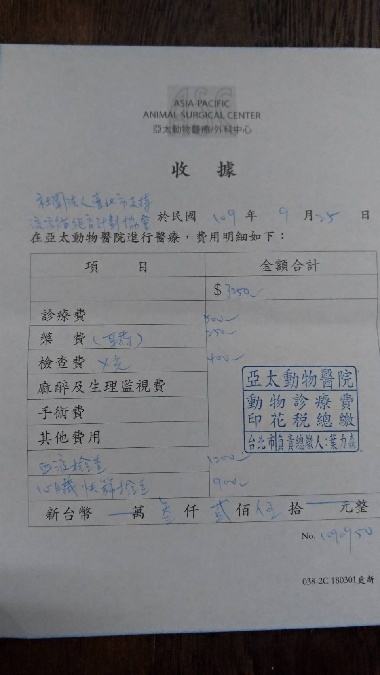 ASC
ASIA-PACIFIC
ANIMAL SURGICAL CENTER
亞太動物醫療/外科中心
收據
社團法人臺北市支持
流浪貓絕育計劃協會 於民國 109 年 9 月 25 日
在亞太動物醫院進行醫療，費用明細如下：
項 目 金額合計
$ 3250
診療費 500
藥 費 250
檢查費 X光 400
麻醉及生理監視費
手術費
其他費用
亞太動物醫院
動物診療費
印花稅總繳
台北市負責總繳人：葉力森
血液檢查 1200
心臟快篩檢查 900
新台幣 萬 參 仟 貳 佰 伍 拾 元整
No. 1090950
038-2C 180301更新